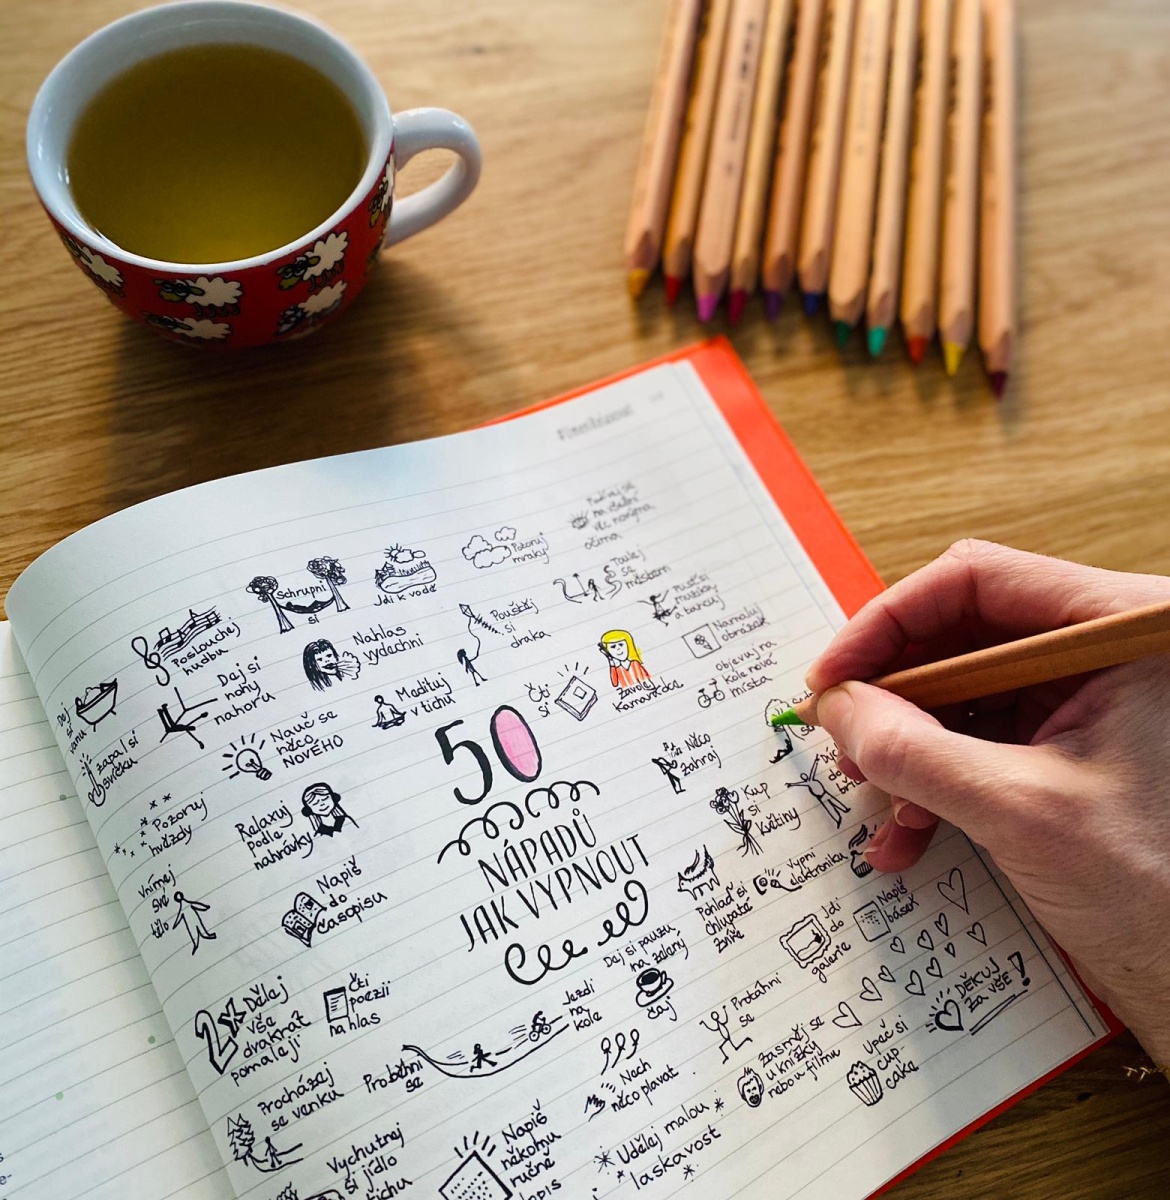 Podívej se
na všední
věc novýma
očima
Pozoruj
mraky
Schrupni
si
Jdi k vodě
Toulej
se
městem
Poslouchej
hudbu
Nahlas
vydechni
Pouštěj
si
draka
Pusť si
muziku
a tancuj
Namaluj
obrázek
Dej si
nohy
nahoru
Medituj
v tichu
Čti
si
Zavolej
kamarádce
Objevuj na
kole nová
místa
Dej
si
vanu
Zapal si
svíčku
Nauč se
něco
NOVÉHO
50
NÁPADŮ
JAK VYPNOUT
Něco
zahraj
Pozoruj
hvězdy
Relaxuj
podle
nahrávky
Kup
si
květiny
Vnímej
své
tělo
Napiš
do
časopisu
Pohlaď si
chlupaté
zvíře
Vypni
elektroniku
Napiš
báseň
Jdi
do
galerie
Dej si pauzu
na zelený
čaj
2x Dělej
vše
dvakrát
pomaleji
Čti
poezii
nahlas
Jezdi
na
kole
Protáhni
se
DĚKUJ
ZA VŠE!
Procházej
se venku
Proběhni
se
Nech
něco plavat
Zasměj se
u knížky
nebo u filmu
Upeč si
cup-
cake
Vychutnej
si jídlo
v tichu
Napiš
někomu
ručně
dopis
Udělej malou
laskavost